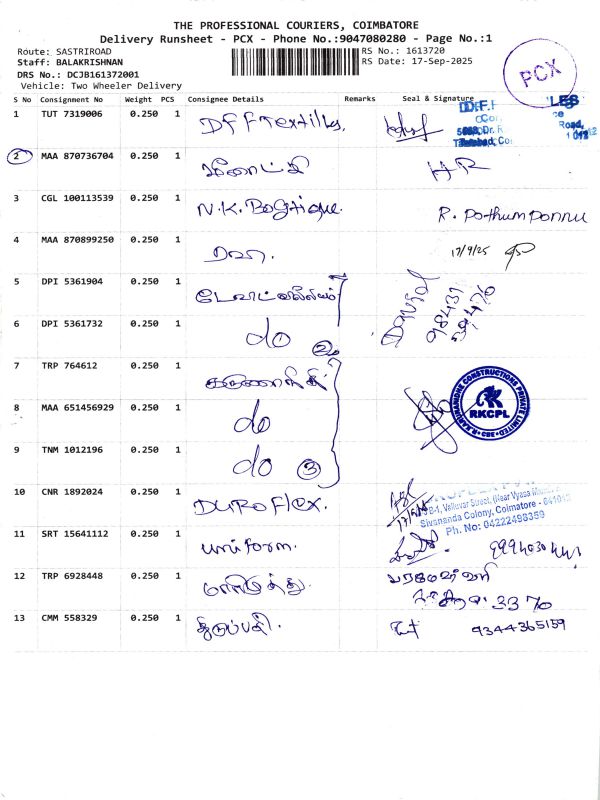 THE PROFESSIONAL COURIERS, COIMBATORE
Delivery Runsheet - PCX - Phone No.:9047080280 - Page No.:1
Route: SASTRIROAD
Staff: BALAKRISHNAN
DRS No.: DCJB161372001
Vehicle: Two Wheeler Delivery
RS No.: 1613720
RS Date: 17-Sep-2025
PCX
S No Consignment No Weight PCS Consignee Details Remarks Seal & Signature
1 TUT 7319006 0.250 1 DFF Textiles.
2 MAA 870736704 0.250 1 HR
3 CGL 100113539 0.250 1 N.K. R. Pothumponnu
4 MAA 870899250 0.250 1 17/9/25
5 DPI 5361904 0.250 1
6 DPI 5361732 0.250 1 do 2 David 98431 59470
7 TRP 764612 0.250 1
R.KARUNANIDHI CONSTRUCTIONS PRIVATE LIMITED
RKCPL
CBE
8 MAA 651456929 0.250 1 do
9 TNM 1012196 0.250 1 do 3
10 CNR 1892024 0.250 1 DUROFLEX.
Valluvar Street, (Near Vyasa
Sivananda Colony, Coimatore - 641012
Ph. No: 04222498359
11 SRT 15641112 0.250 1 uniform.
12 TRP 6928448 0.250 1 மாரிமுத்து. 3370
13 CMM 558329 0.250 1 திருப்பதி. 9344365159